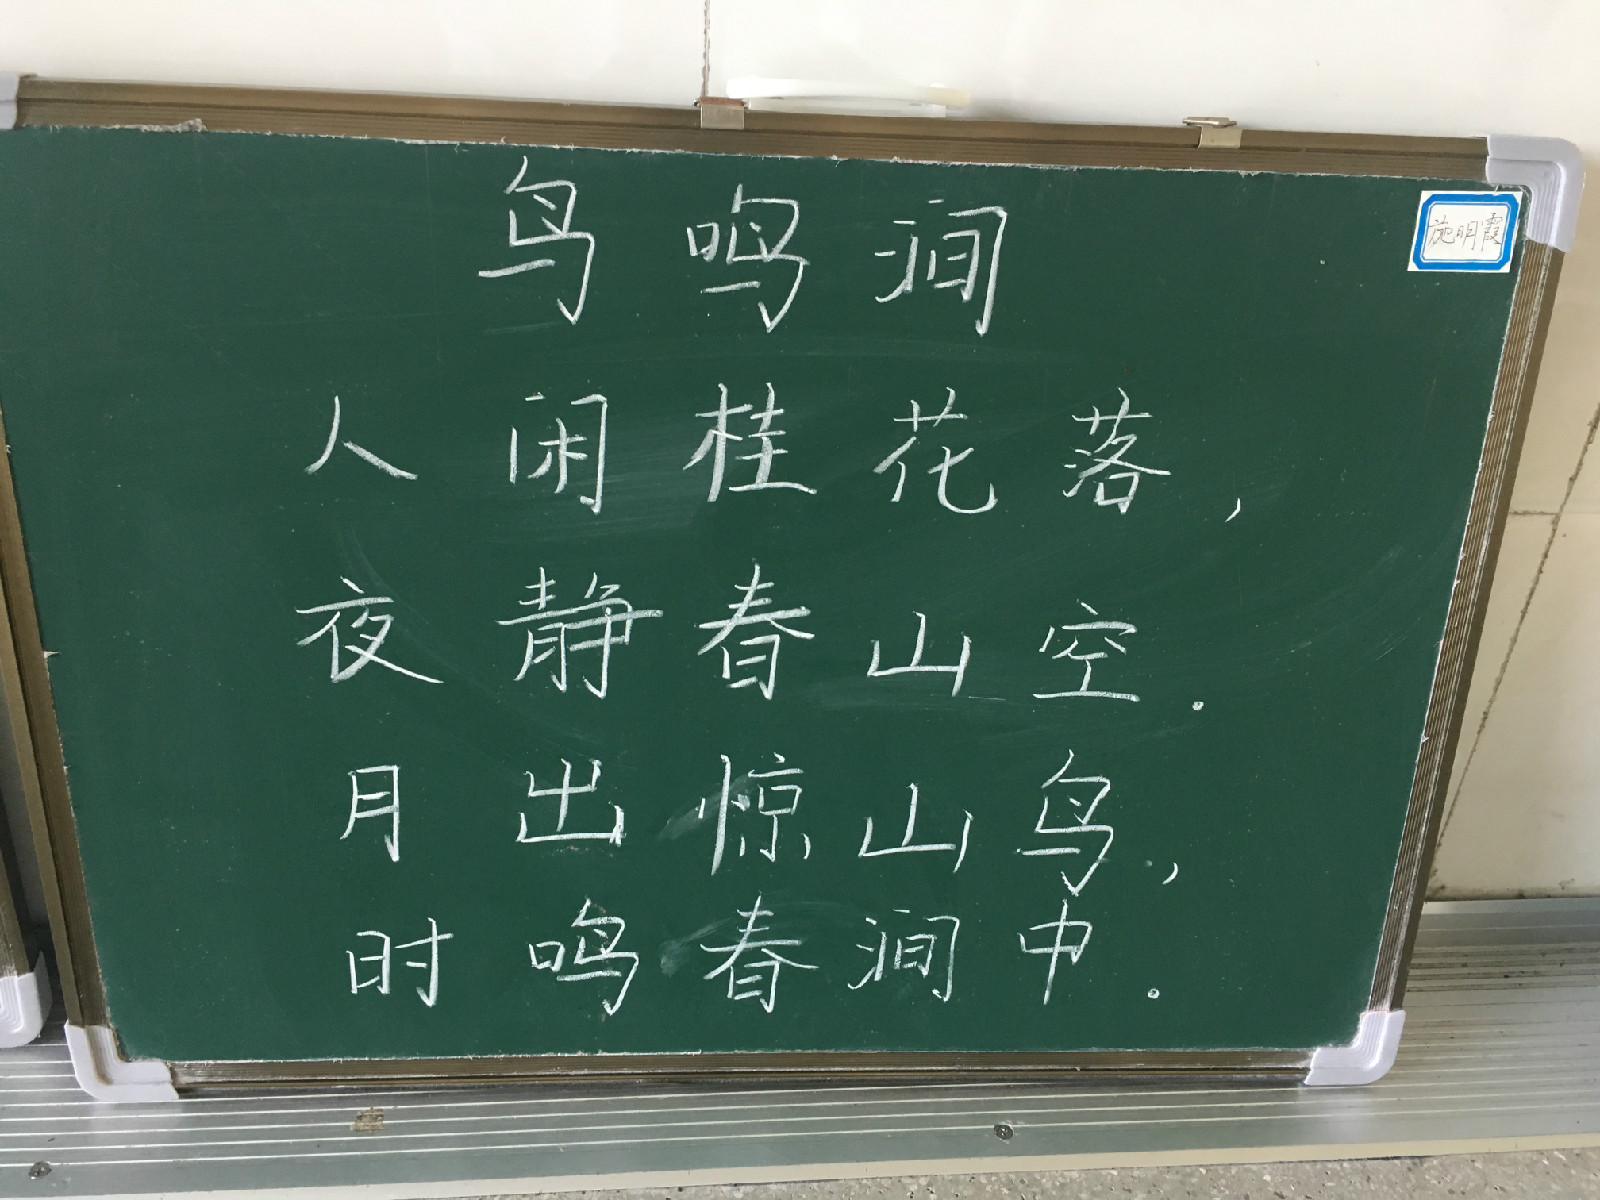 鸟鸣涧
施明霞
人闲桂花落,
夜静春山空.
月出惊山鸟,
时鸣春涧中.